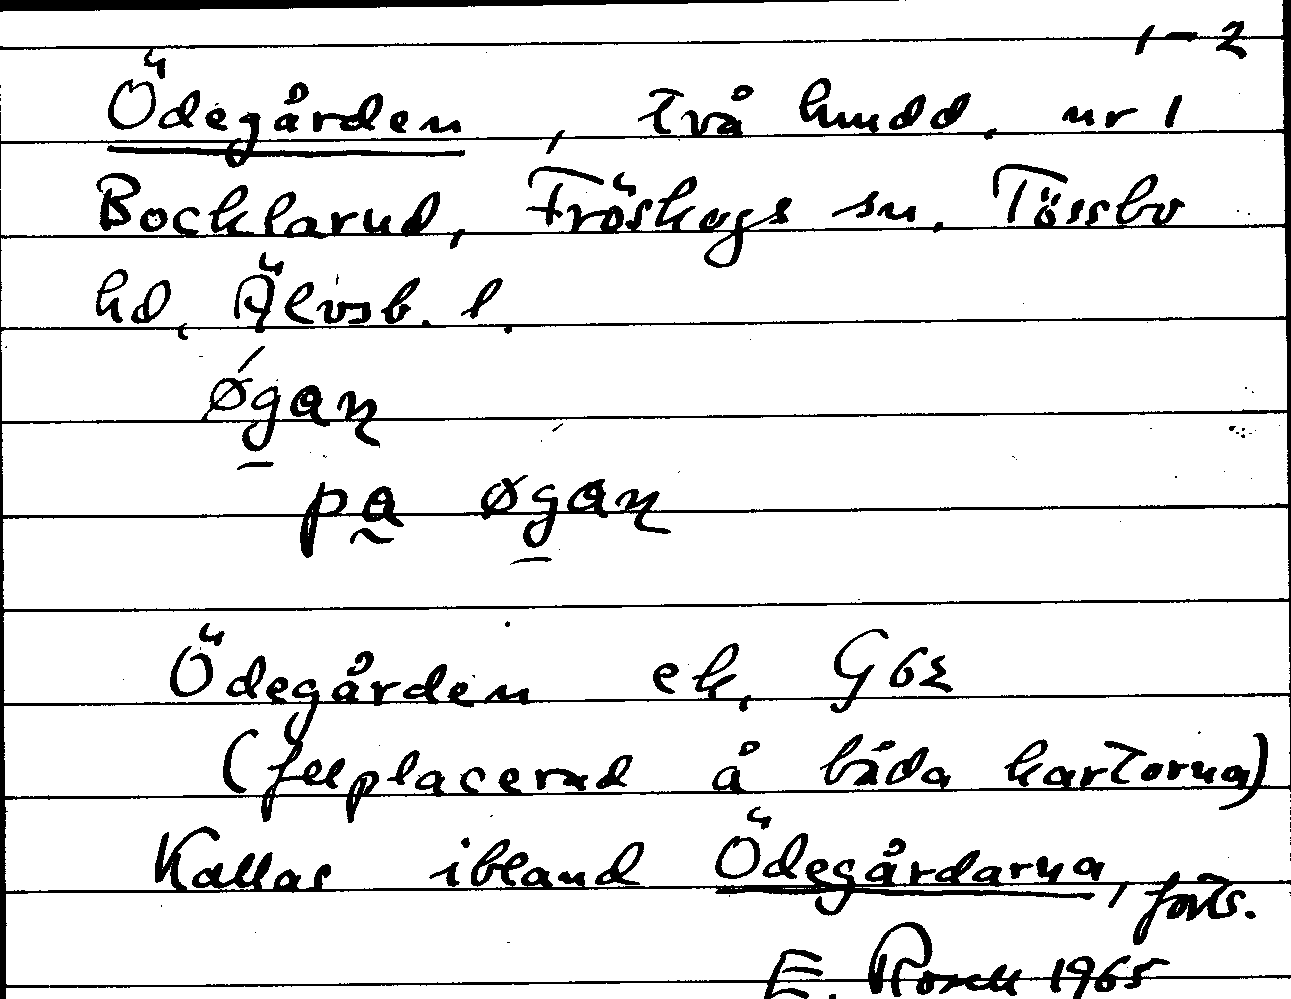 1-2
Ödegården, två hmdd. nr 1
Bocklarud, Fröskogs sn. Tössbo
hd, Älvsb. l.
ǿgaɳ
pa øgaɳ
Ödegården ek. G62
(felplacerad å båda kartorna)
Kallas ibland Ödegårdarna, forts.
E. Rosell 1965